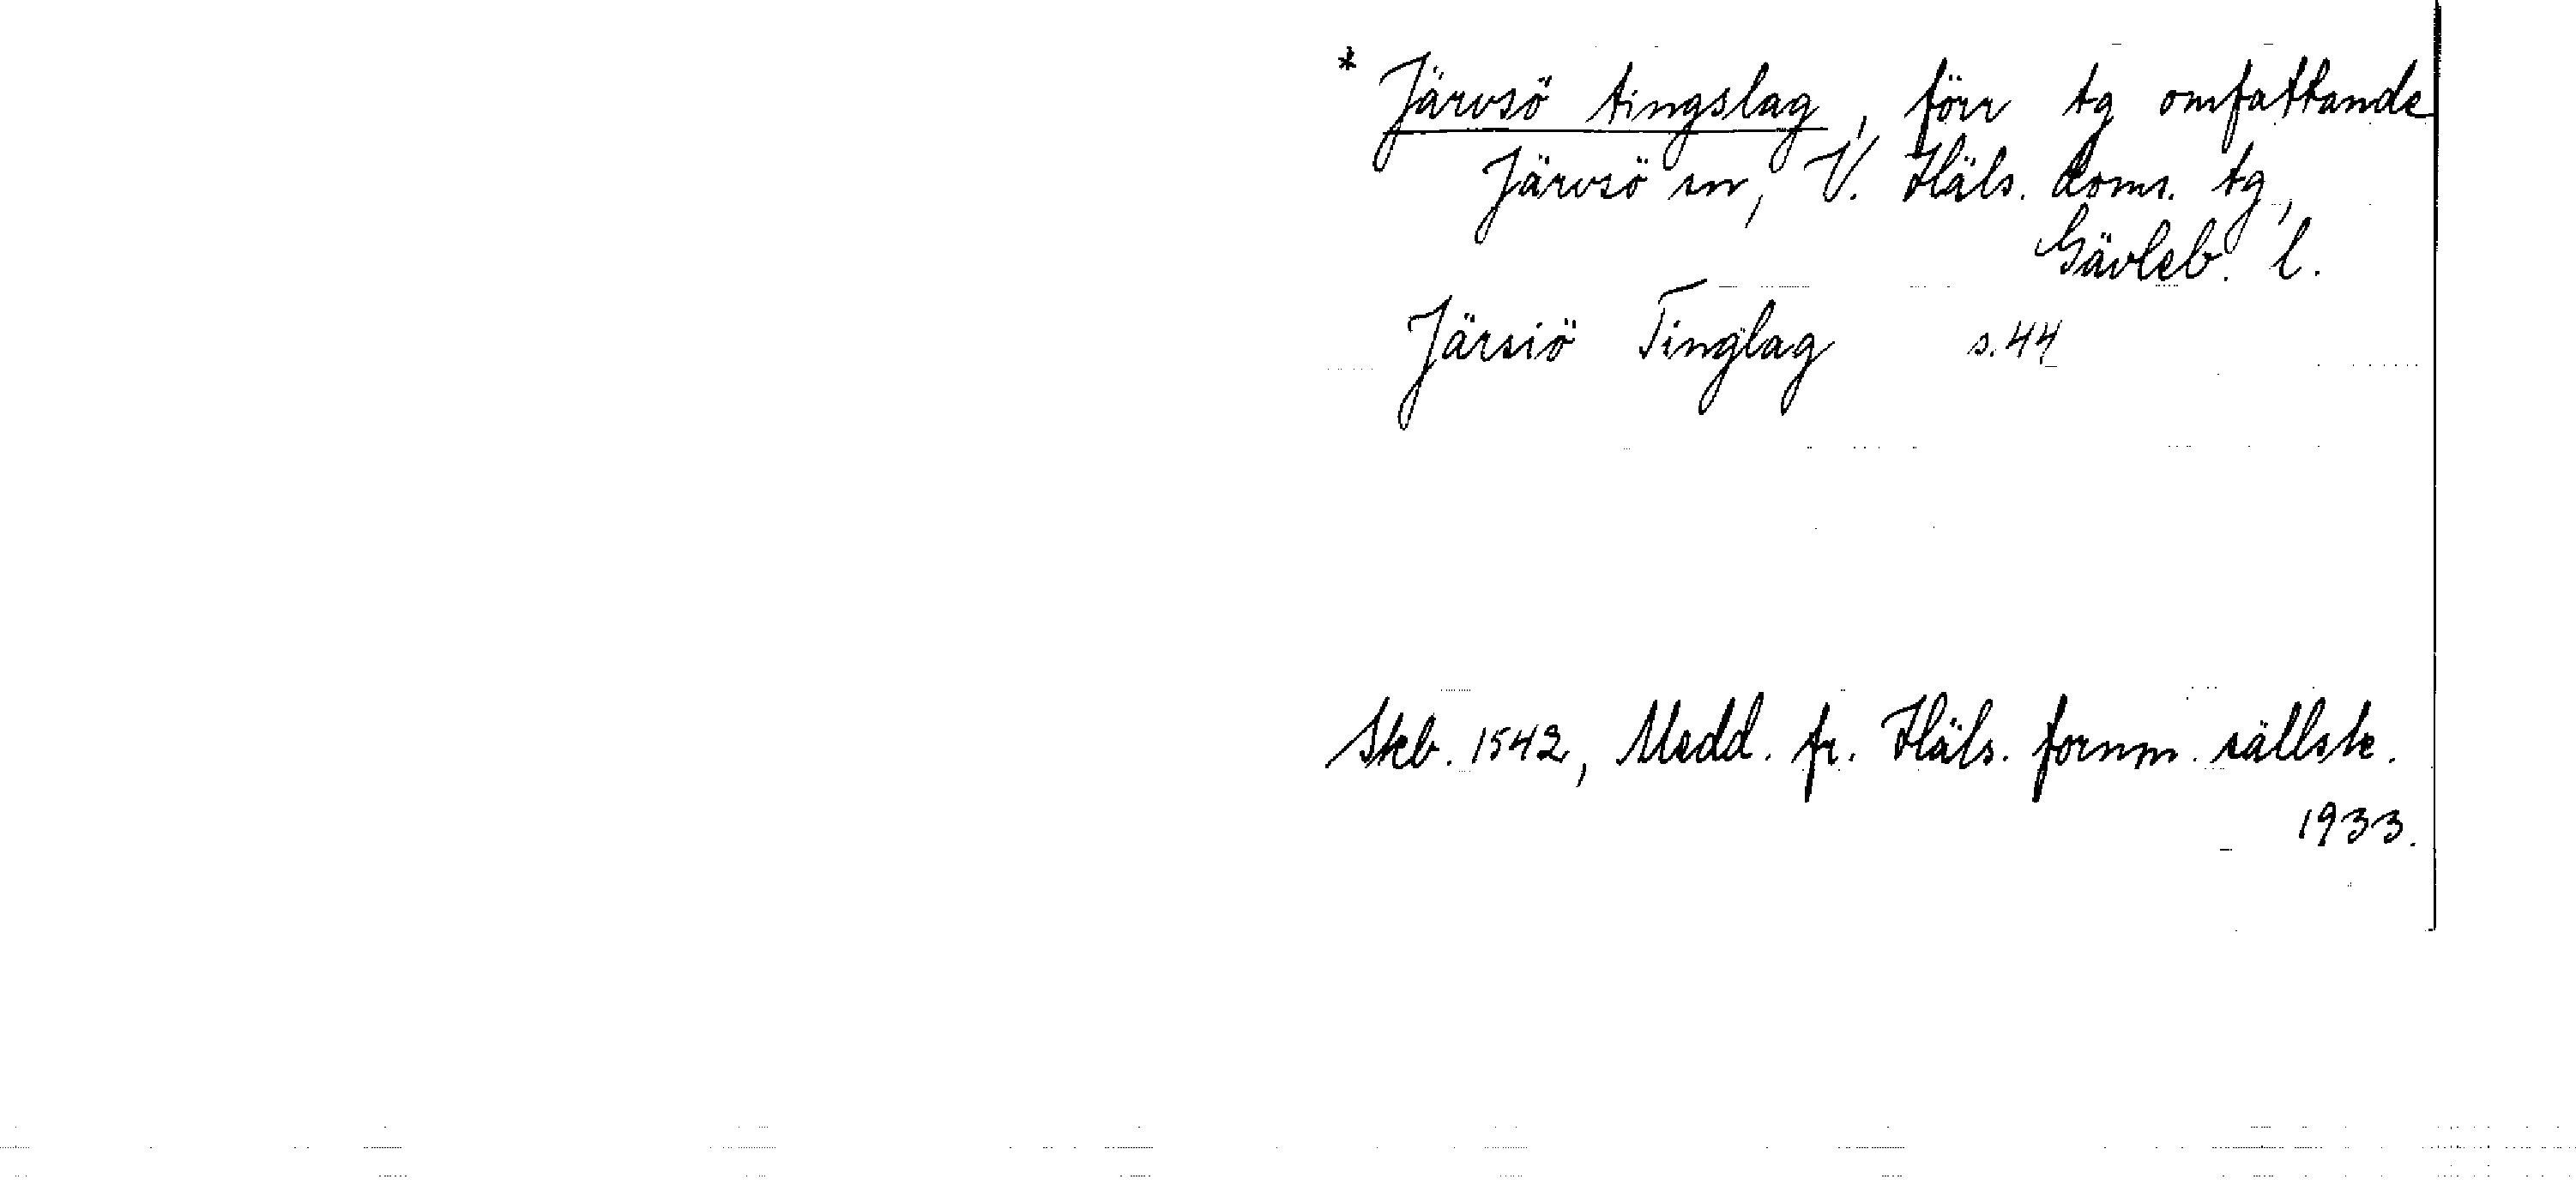 * Järvsö tingslag, förr tg omfattande
Järvsö sn, V. Häls. doms. tg,
Gävleb. l.
Järsiö Tinglag s. 44
Skb. 1542, Medd. fr. Häls. fornm. sällsk.
1933.